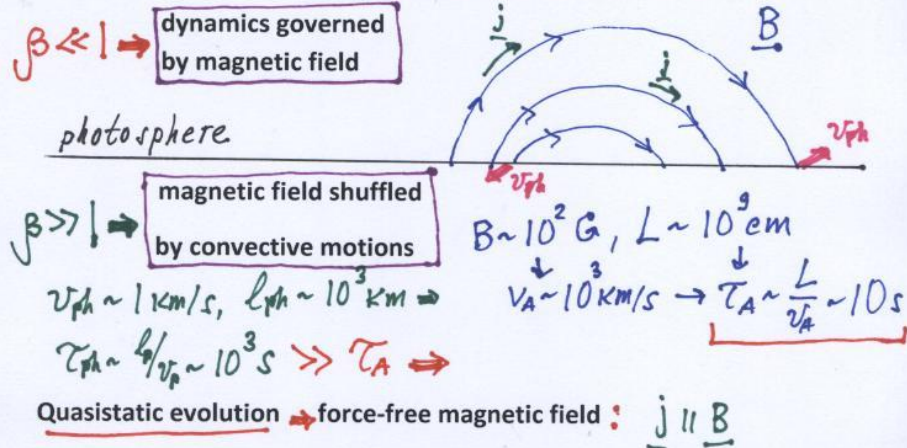 β ≪ 1 ⇒ dynamics governed
by magnetic field
j
j
B
photosphere
v_ph
v_ph
β ≫ 1 ⇒ magnetic field shuffled
by convective motions
B ~ 10² G, L ~ 10⁹ cm
↓ ↓
v_ph ~ 1 km/s, l_ph ~ 10³ km ⇒
v_A ~ 10³ km/s → τ_A ~ L/v_A ~ 10 s
τ_ph ~ l_p/v_p ~ 10³ s ≫ τ_A ⇒
Quasistatic evolution ⇒ force-free magnetic field : j ∥ B